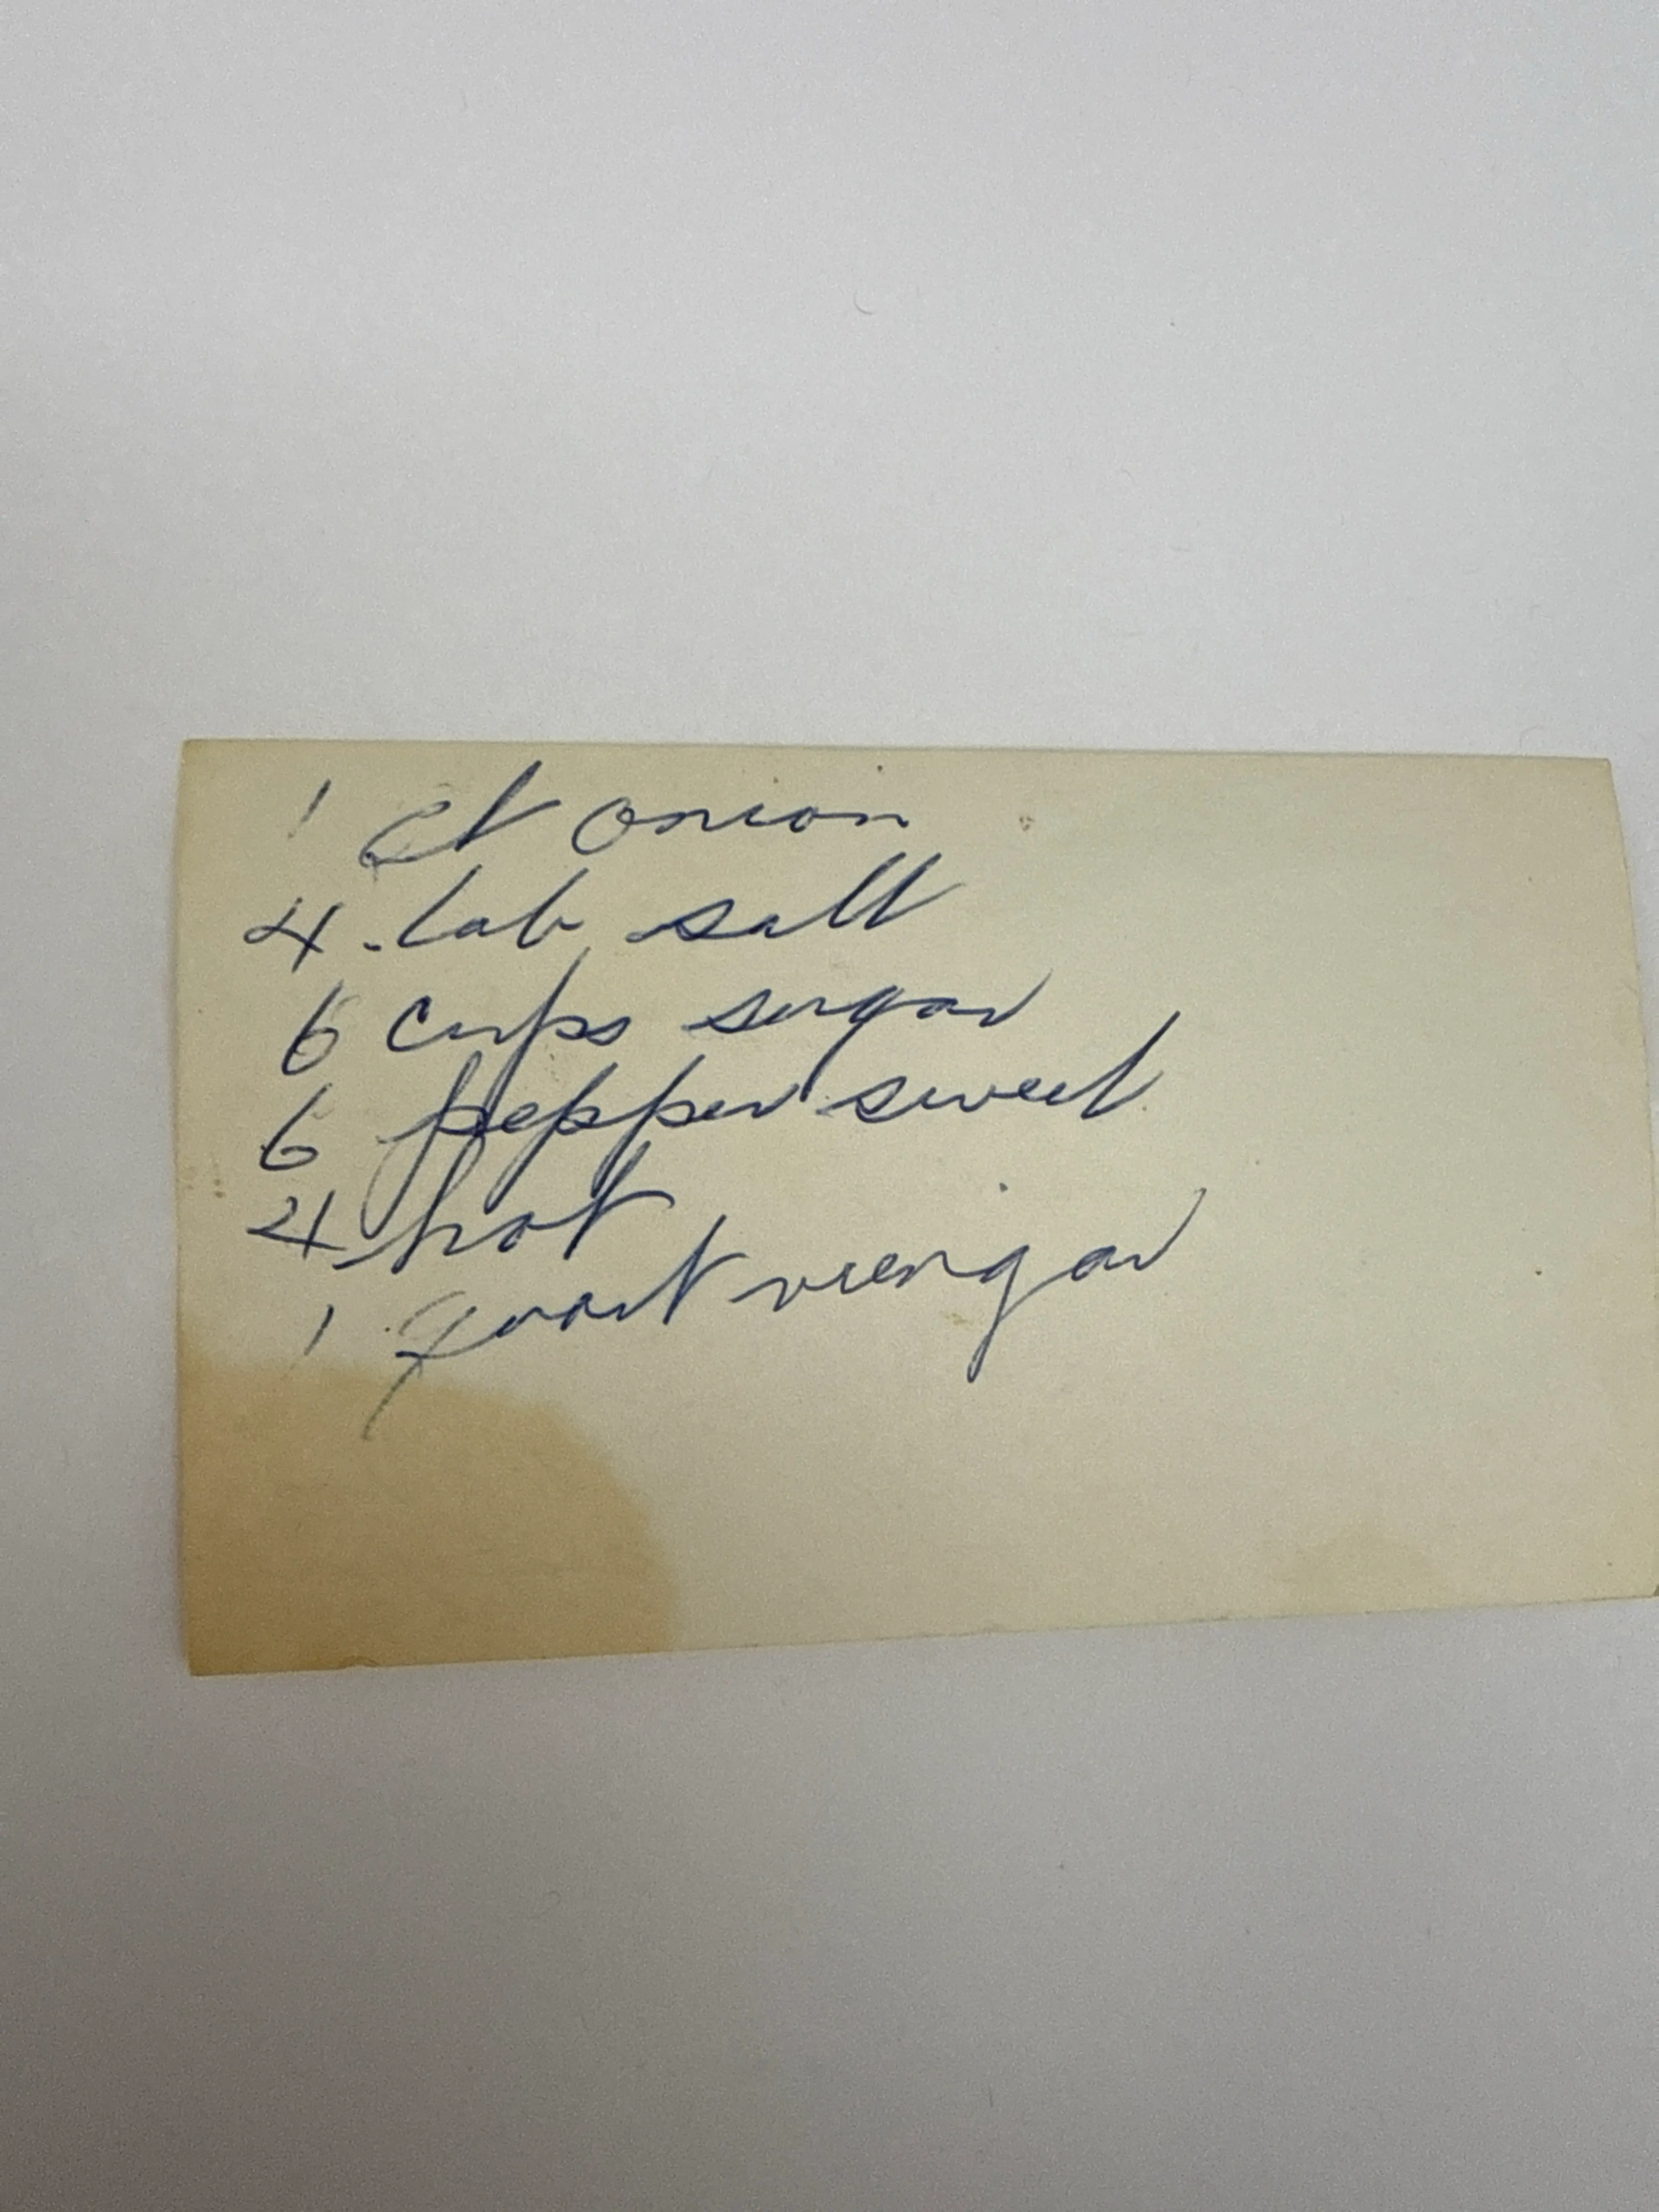 1 Qt Onion
4 tab salt
6 cups sugar
6 pepper sweet
4 hot
1 Quart viengar